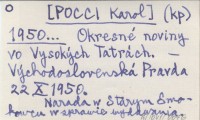 [POCCI Karol] (kp)
1950... Okresné noviny
vo Vysokých Tatrách. —
Východoslovenská Pravda
22 X 1950.
Narada w Starym Smo-
kowcu w sprawie wydawania